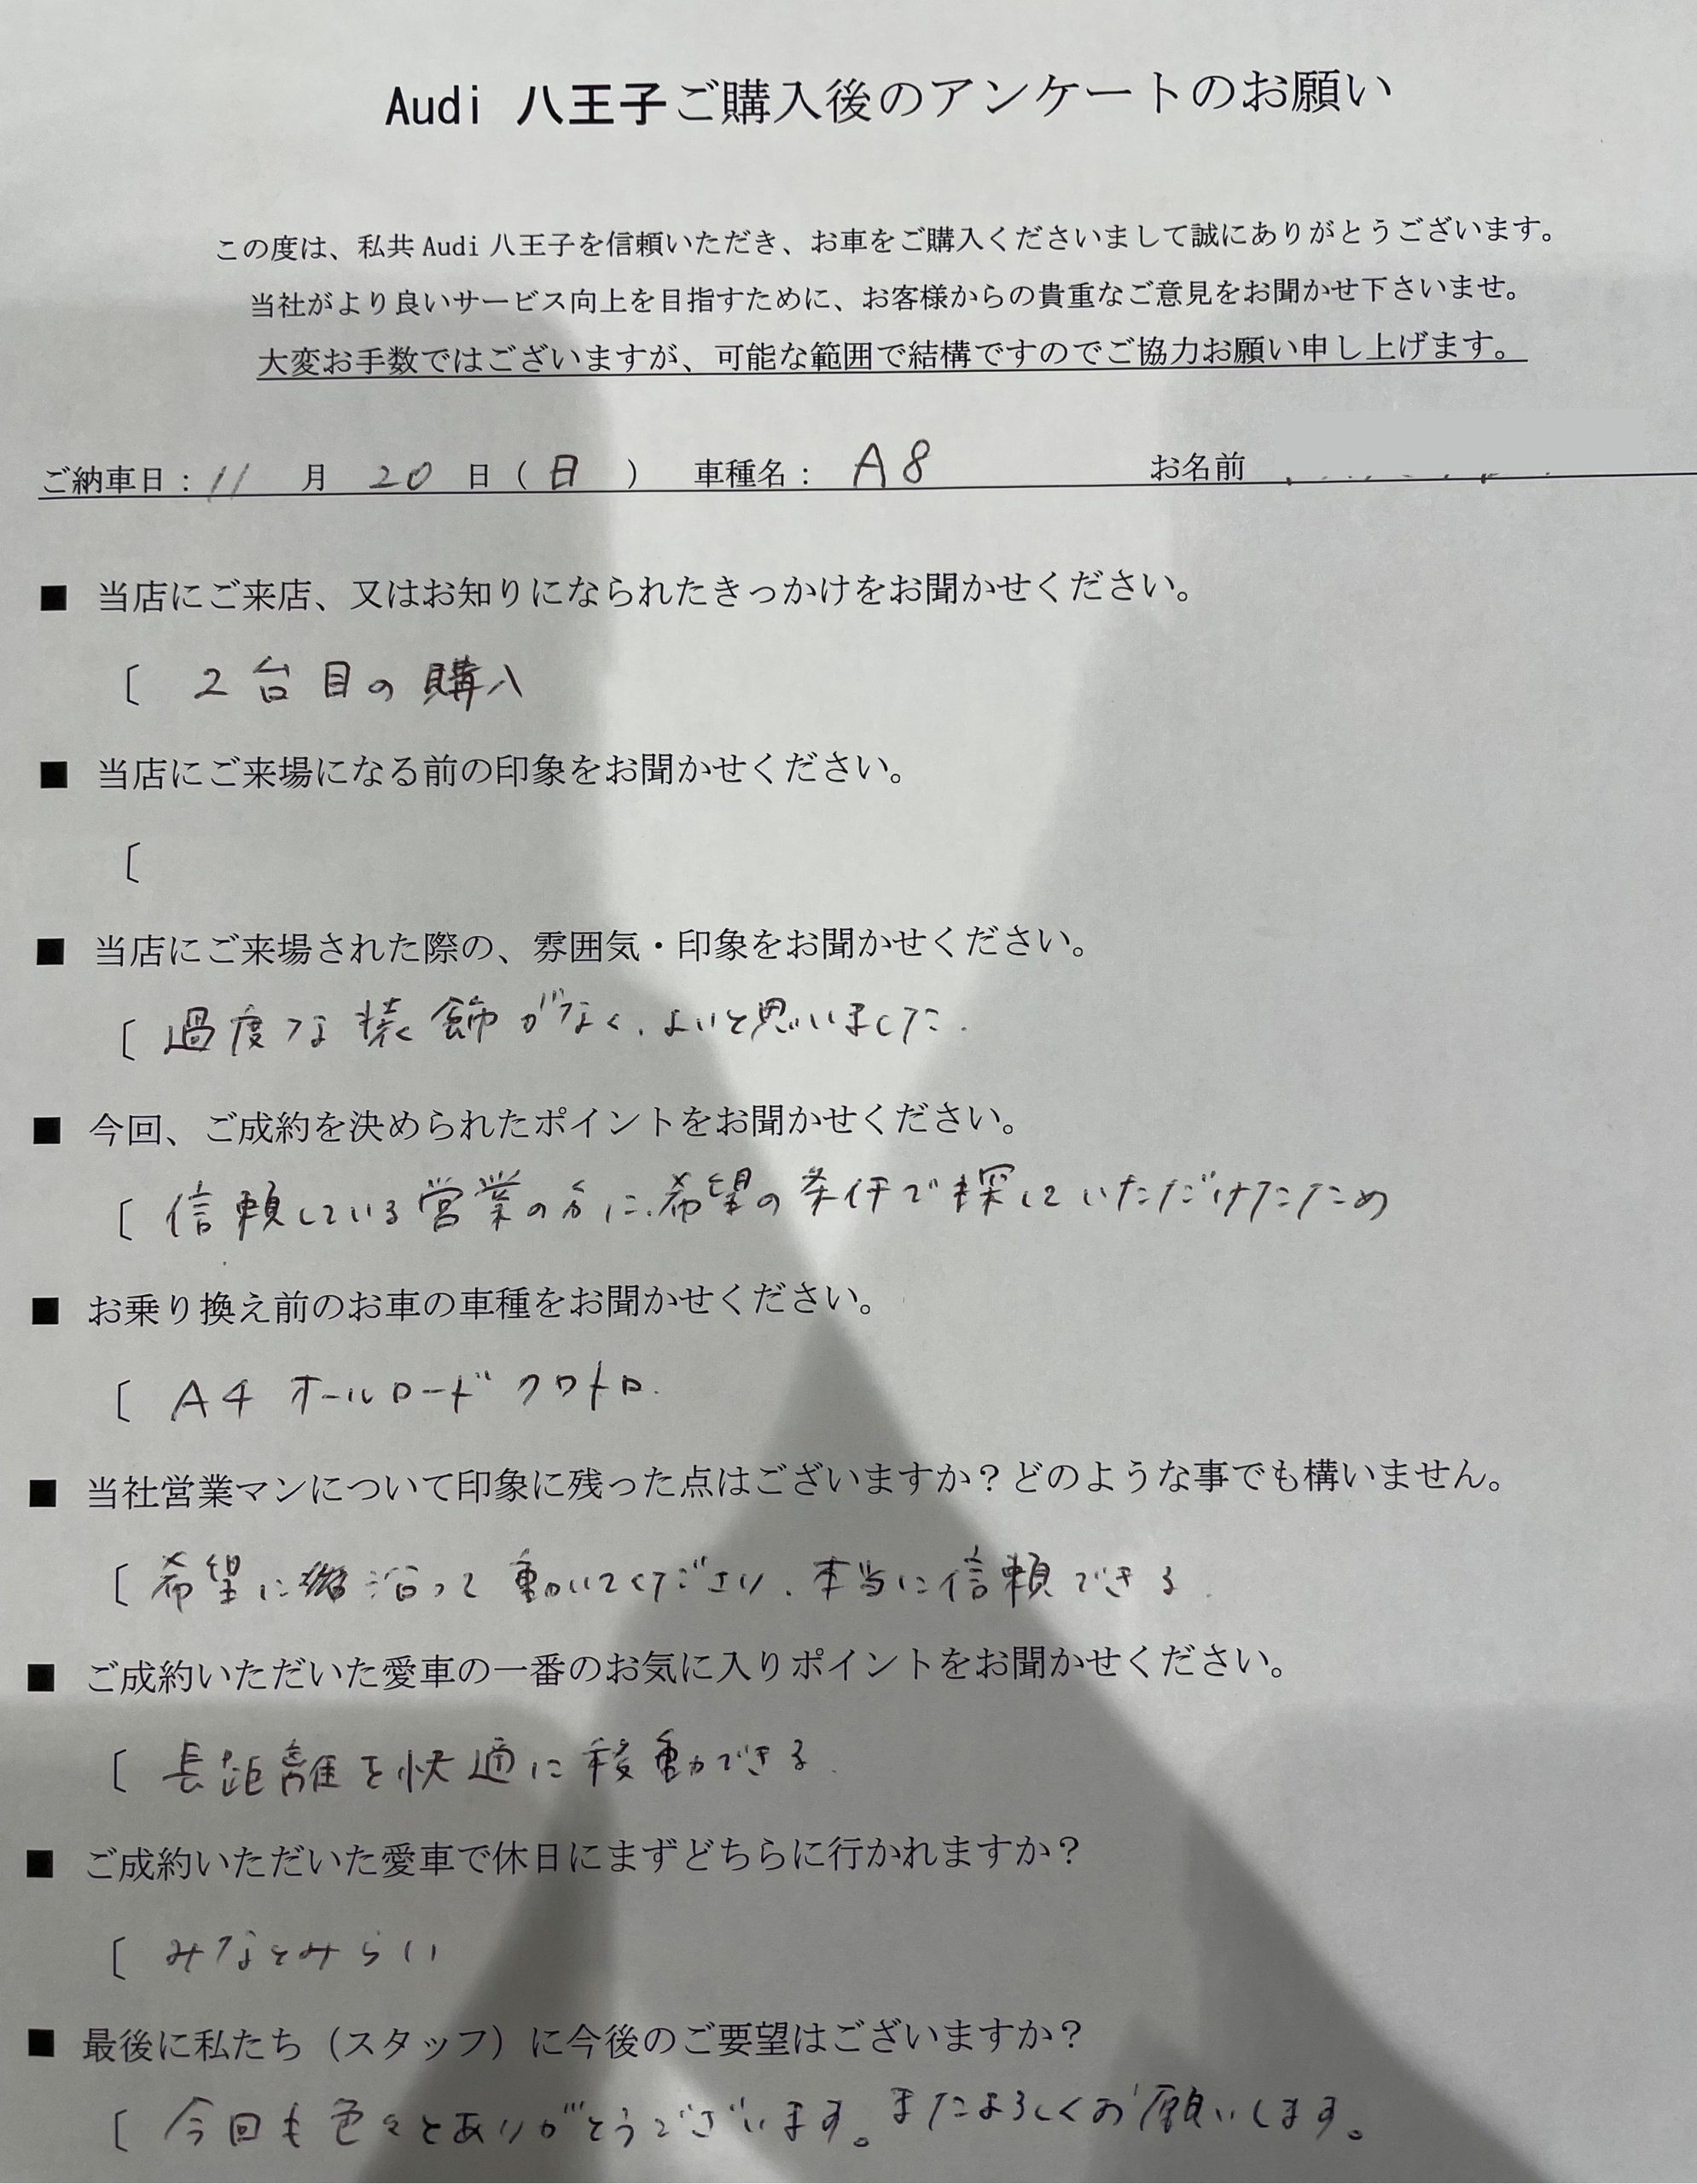 Audi 八王子ご購入後のアンケートのお願い
この度は、私共 Audi 八王子を信頼いただき、お車をご購入くださいまして誠にありがとうございます。
当社がより良いサービス向上を目指すために、お客様からの貴重なご意見をお聞かせ下さいませ。
大変お手数ではございますが、可能な範囲で結構ですのでご協力お願い申し上げます。
ご納車日：11 月 20 日（日） 車種名： A8 お名前
■ 当店にご来店、又はお知りになられたきっかけをお聞かせください。
〔 2台目の購入
■ 当店にご来場になる前の印象をお聞かせください。
〔
■ 当店にご来場された際の、雰囲気・印象をお聞かせください。
〔 過度な装飾がなく、よいと思いました。
■ 今回、ご成約を決められたポイントをお聞かせください。
〔 信頼している営業の方に、希望の条件で探していただけたため
■ お乗り換え前のお車の車種をお聞かせください。
〔 A4 オールロードクワトロ.
■ 当社営業マンについて印象に残った点はございますか？どのような事でも構いません。
〔 希望に沿って動いてくださり、本当に信頼できる.
■ ご成約いただいた愛車の一番のお気に入りポイントをお聞かせください。
〔 長距離を快適に移動できる.
■ ご成約いただいた愛車で休日にまずどちらに行かれますか？
〔 みなとみらい
■ 最後に私たち（スタッフ）に今後のご要望はございますか？
〔 今回も色々とありがとうございます。またよろしくお願いします。